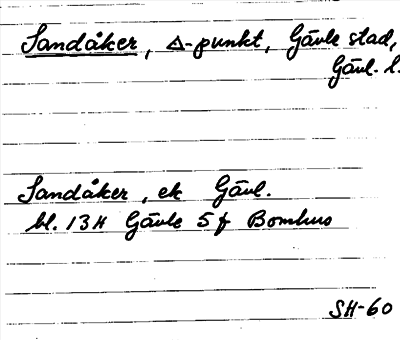 Sandåker, Δ-punkt, Gävle stad,
Gävl. l.
Sandåker, ek Gävl.
bl. 13H Gävle 5f Bomhus
SH-60